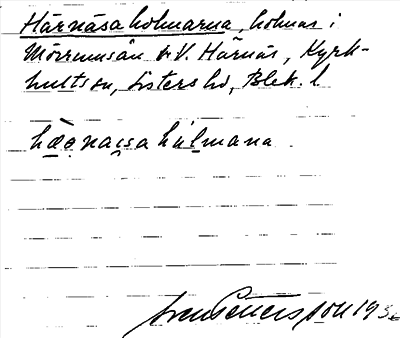 Härnäsaholmarna, holmar i
Mörrumsån v. V. Härnäs, Kyrk-
hults sn, Listers hd, Blek. l
hæ̀ṇna̱i̯sa hu̇lmana
Sven Petersson 1936